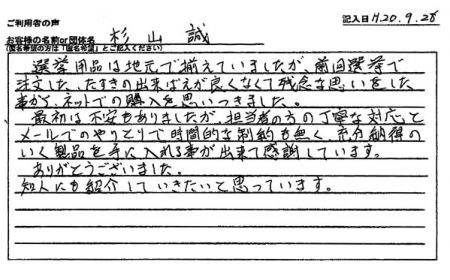 ご利用者の声
記入日 H20.9.28
お客様の名前or団体名 杉山 誠
(匿名希望の方は「匿名希望」とご記入ください)
選挙用品は地元で揃えていましたが、前回選挙で
注文した、たすきの出来ばえが良くなくて残念な思いをした
事から、ネットでの購入を思いつきました。
最初は不安もありましたが、担当者の方の丁寧な対応と
メールでのやりとりで時間的な制約も無く、充分納得の
いく製品を手に入れる事が出来て感謝しています。
ありがとうございました。
知人にも紹介していきたいと思っています。